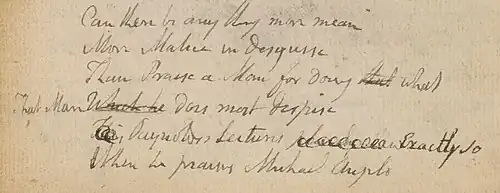 Can there be any thing more mean
More Malice in disguise
Than Praise a Man for doing that what
That Man Which he does most despise
This Reynolds Lectures Exactly so
When he praises Michael Angelo